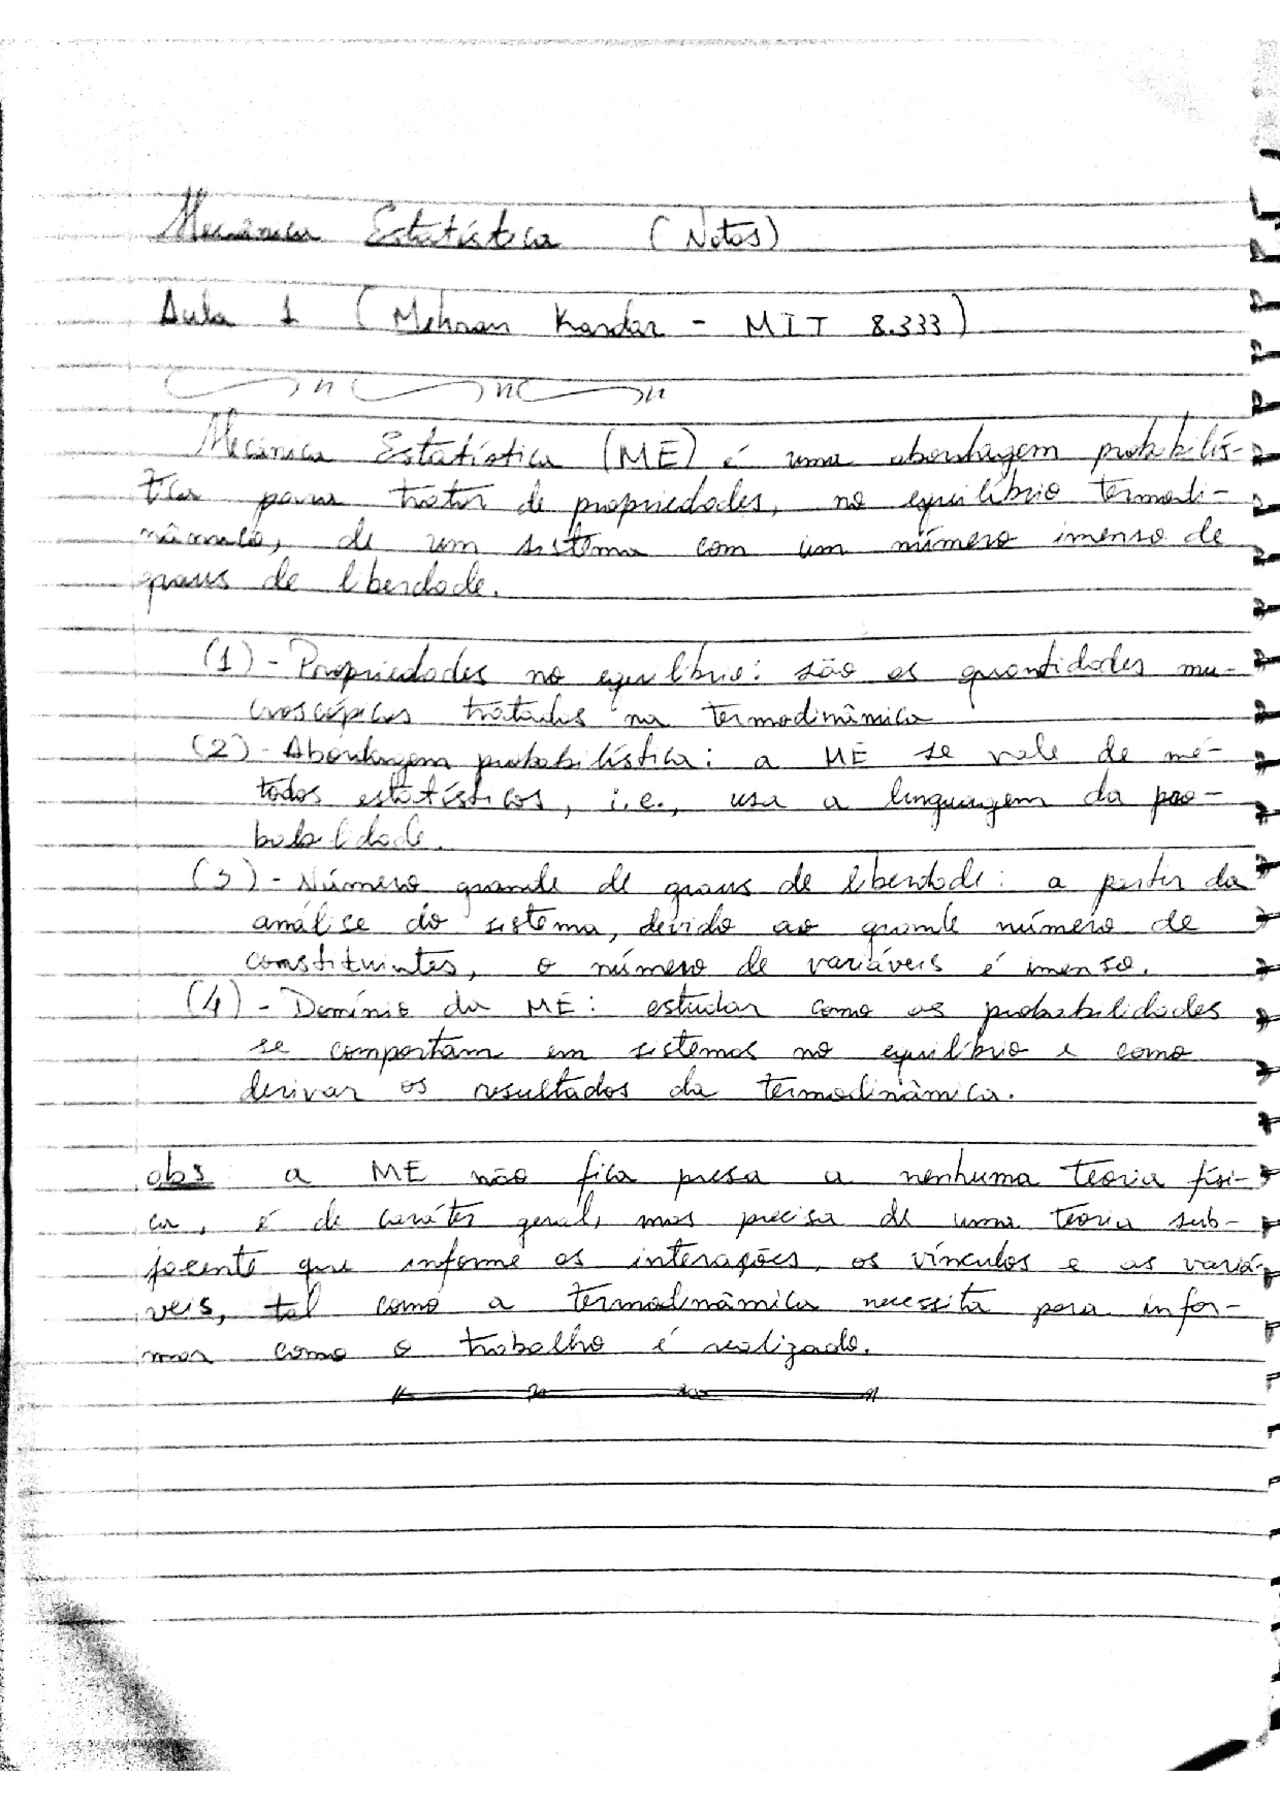 Mecânica Estatística (Notas)
Aula 1 (Mehran Kardar - MIT 8.333)
Mecânica Estatística (ME) é uma abordagem probabilís-
tica para tratar de propriedades, no equilíbrio termodi-
nâmico, de um sistema com um número imenso de
graus de liberdade.
(1) - Propriedades no equilíbrio: são as quantidades ma-
croscópicas tratadas na termodinâmica
(2) - Abordagem probabilística: a ME se vale de mé-
todos estatísticos, i.e., usa a linguagem da pro-
babilidade.
(3) - Número grande de graus de liberdade: a partir da
análise do sistema, devido ao grande número de
constituintes, o número de variáveis é imenso.
(4) - Domínio da ME: estudar como as probabilidades
se comportam em sistemas no equilíbrio e como
derivar os resultados da termodinâmica.
obs: a ME não fica presa a nenhuma teoria físi-
ca, é de caráter geral, mas precisa de uma teoria sub-
jacente que informe as interações, os vínculos e as variá-
veis, tal como a termodinâmica necessita para infor-
mar como o trabalho é realizado.